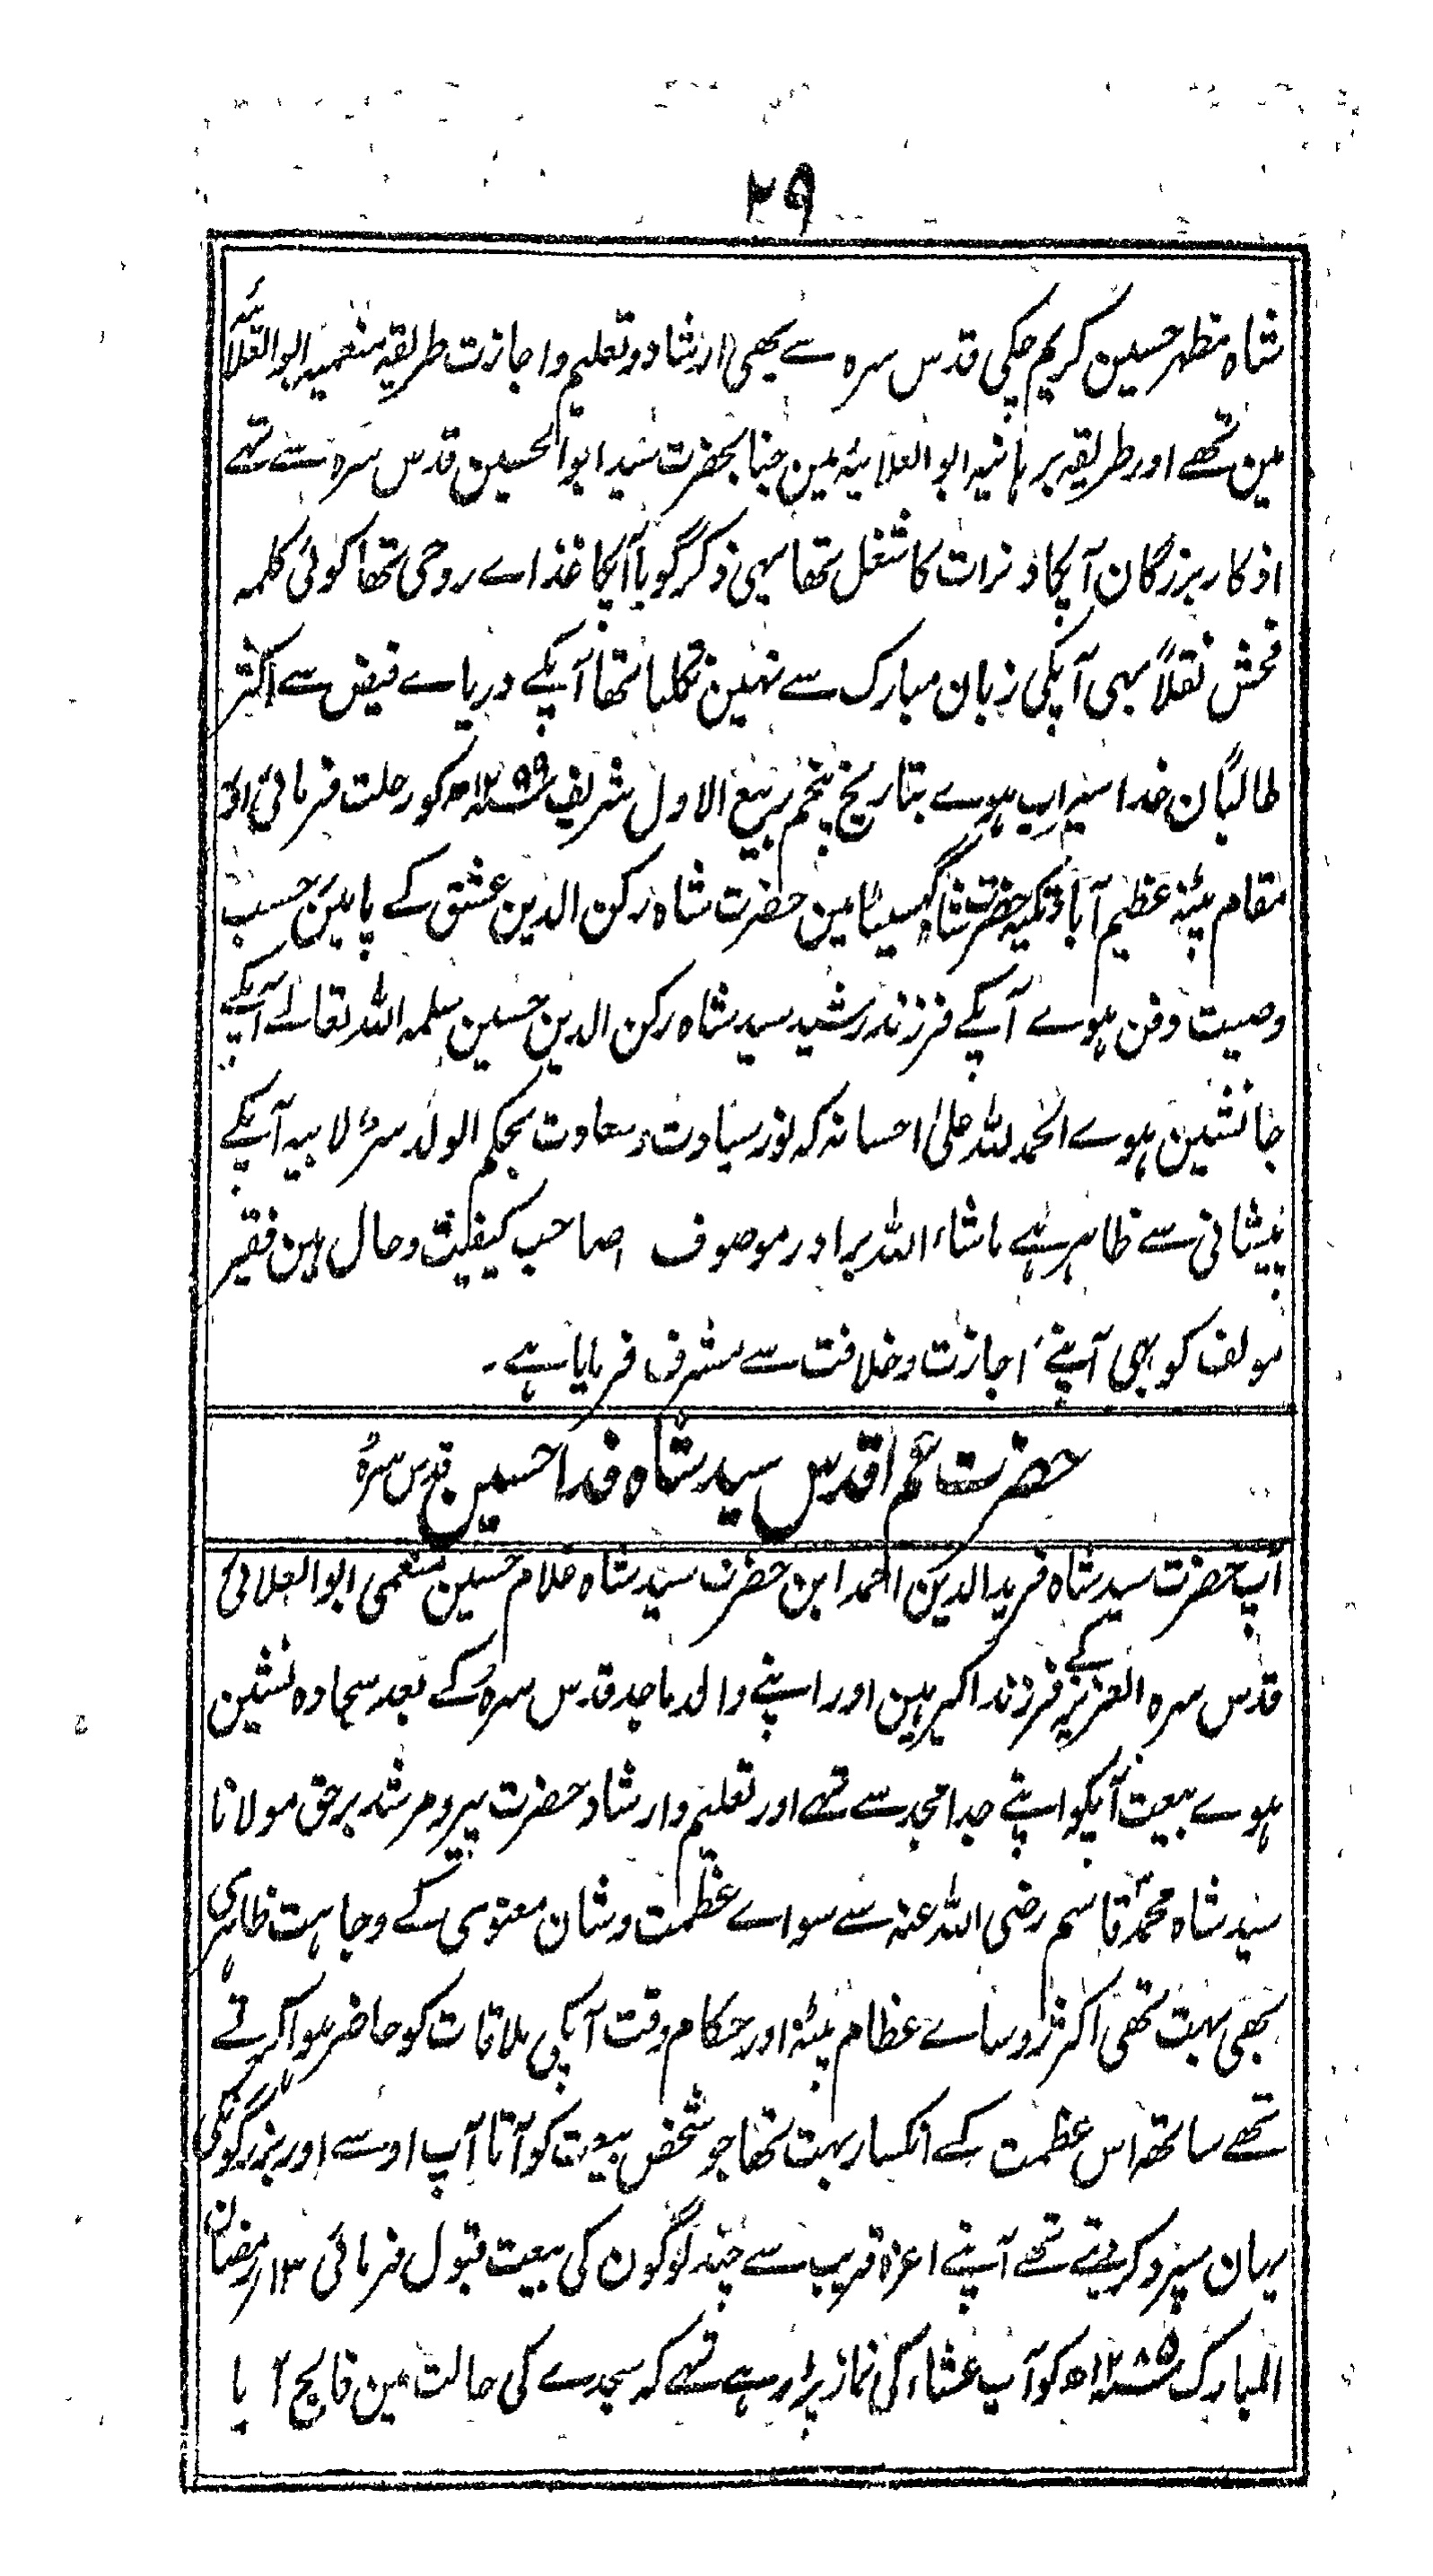 ۲۹
شاہ مظہر حسین کریم چکی قدس سرہ سے بھی ارشاد و تعلیم و اجازت طریقہ منعمیہ ابوالعلائیہ
مین تھے اور طریقہ برہانیہ ابوالعلائیہ مین جناب حضرت سید ابوالحسین قدس سرہ سے تہے
اذکار بزرگان آپکا دنرات کا شغل تھا یہی ذکر گویا آپکا غذاے روحی تھا کوئی کلمہ
فحش نقلاً بہی آپکی زبان مبارک سے نہین نکلتا تھا آپکے دریاے فیض سے اکثر
طالبان خدا سیراب ہوے بتاریخ پنجم ربیع الاول شریف ۱۲۹۹ھ کو رحلت فرمائی اور
مقام پٹنہ عظیم آباد تکیہ حضرت شاہ گھسیٹا مین حضرت شاہ رکن الدین عشق کے پائین حسب
وصیت دفن ہوے آپکے فرزند رشید سید شاہ رکن الدین حسین سلمہ اللہ تعالے آپکے
جانشین ہوے الحمد للہ علیٰ احسانہ کہ نور سیادت و سعادت بحکم الولد سرٌ لابیہ آپکے
پیشانی سے ظاہر ہے ماشاء اللہ برادر موصوف صاحب کیفیت و حال ہین فقیر
مولف کو بہی آپنے اجازت و خلافت سے مشرف فرمایا ہے۔
حضرت عم اقدس سید شاہ فدا حسین قدس سرہُ
آپ حضرت سید شاہ فرید الدین احمد ابن حضرت سید شاہ غلام حسین منعمی ابوالعلائی
قدس سرہ العزیز کے فرزند اکبر ہین اور اپنے والد ماجد قدس سرہُ کے بعد سجادہ نشین
ہوے بیعت آپکو اپنے جد امجد سے تہے اور تعلیم و ارشاد حضرت پیر و مرشد برحق مولانا
سید شاہ محمد قاسم رضی اللہ عنہ سے سواے عظمت و شان معنوی کے وجاہت ظاہری
بھی بہت تھی اکثر روساے عظام پٹنہ اور حکام وقت آپکی ملاقات کو حاضر ہوا کرتے
تھے ساتھ اس عظمت کے انکسار بہت تھا جو شخص بیعت کو آتا آپ اوسے اور بزرگونکے
یہان سپرد کردیتے تھے آپنے اعزہ قریب سے چند لوگون کی بیعت قبول فرمائی ۱۳ رمضان
المبارک ۱۲۸۵ھ کو آپ عشاء کی نماز پڑہ رہے تہے کہ سجدے کی حالت مین فالج آیا